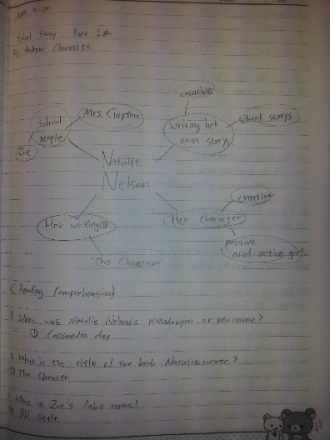 School Story. Part 1
creative
School
People
Mrs. Clayton
Writing her
own story
school story
Zoe
Natalie
Nelson
Her writing
Her character
creative
positive
and active girl
The Cheater
(Reading Comprehension)
1. What was Natalie Nelson's pseudonym or pen name?
① Cassandra day
2. What is the title of the book Natalie wrote?
The Cheater
3. What is Zoe's fake name?